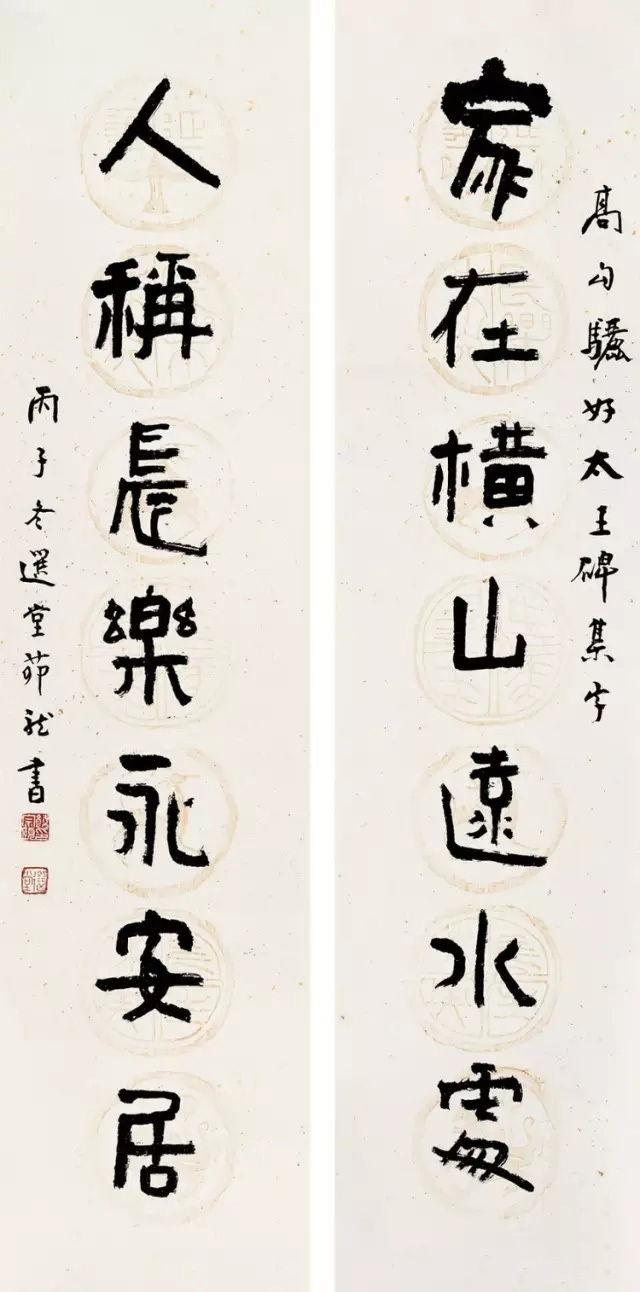 高句驪好太王碑集字
家在橫山遠水處
人稱長樂永安居
丙子冬選堂茆龍書